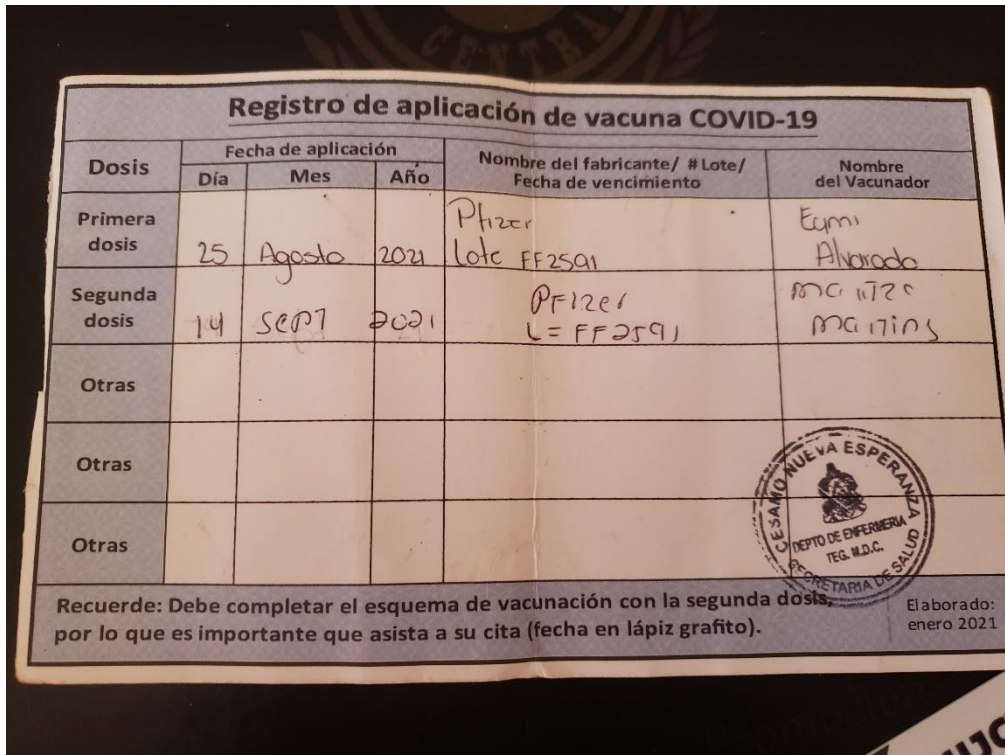 CENTRA
Registro de aplicación de vacuna COVID-19
Dosis
Fecha de aplicación
Día Mes Año
Nombre del fabricante/ #Lote/
Fecha de vencimiento
Nombre
del Vacunador
Primera
dosis
25 Agosto 2021
Pfizer
Lote FF2591
Alvarado
Segunda
dosis
14 SEPT 2021
PFizer
L= FF2591
Otras
Otras
Otras
CESAMO NUEVA ESPERANZA
DEPTO DE ENFERMERIA
TEG. M.D.C.
SECRETARIA DE SALUD
Recuerde: Debe completar el esquema de vacunación con la segunda dosis,
por lo que es importante que asista a su cita (fecha en lápiz grafito).
Elaborado:
enero 2021